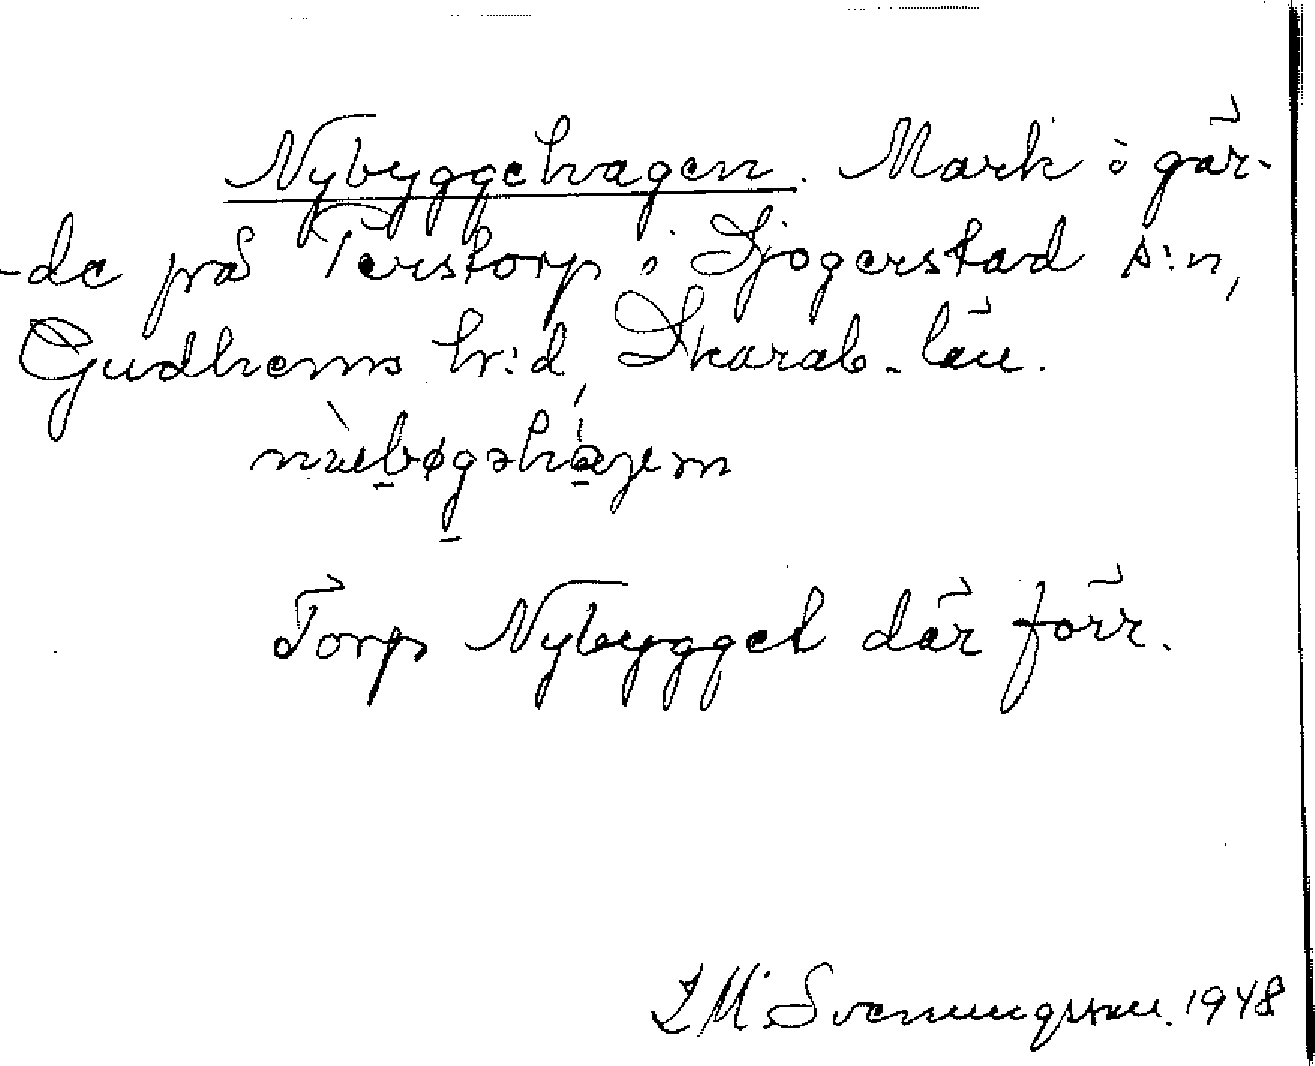 Nybyggehagen. Mark i gär-
-de på Terstorp i Sjogerstad s:n,
Gudhems hr:d, Skarab. län.
Torp Nybygget där förr.
Svenungsson. 1948